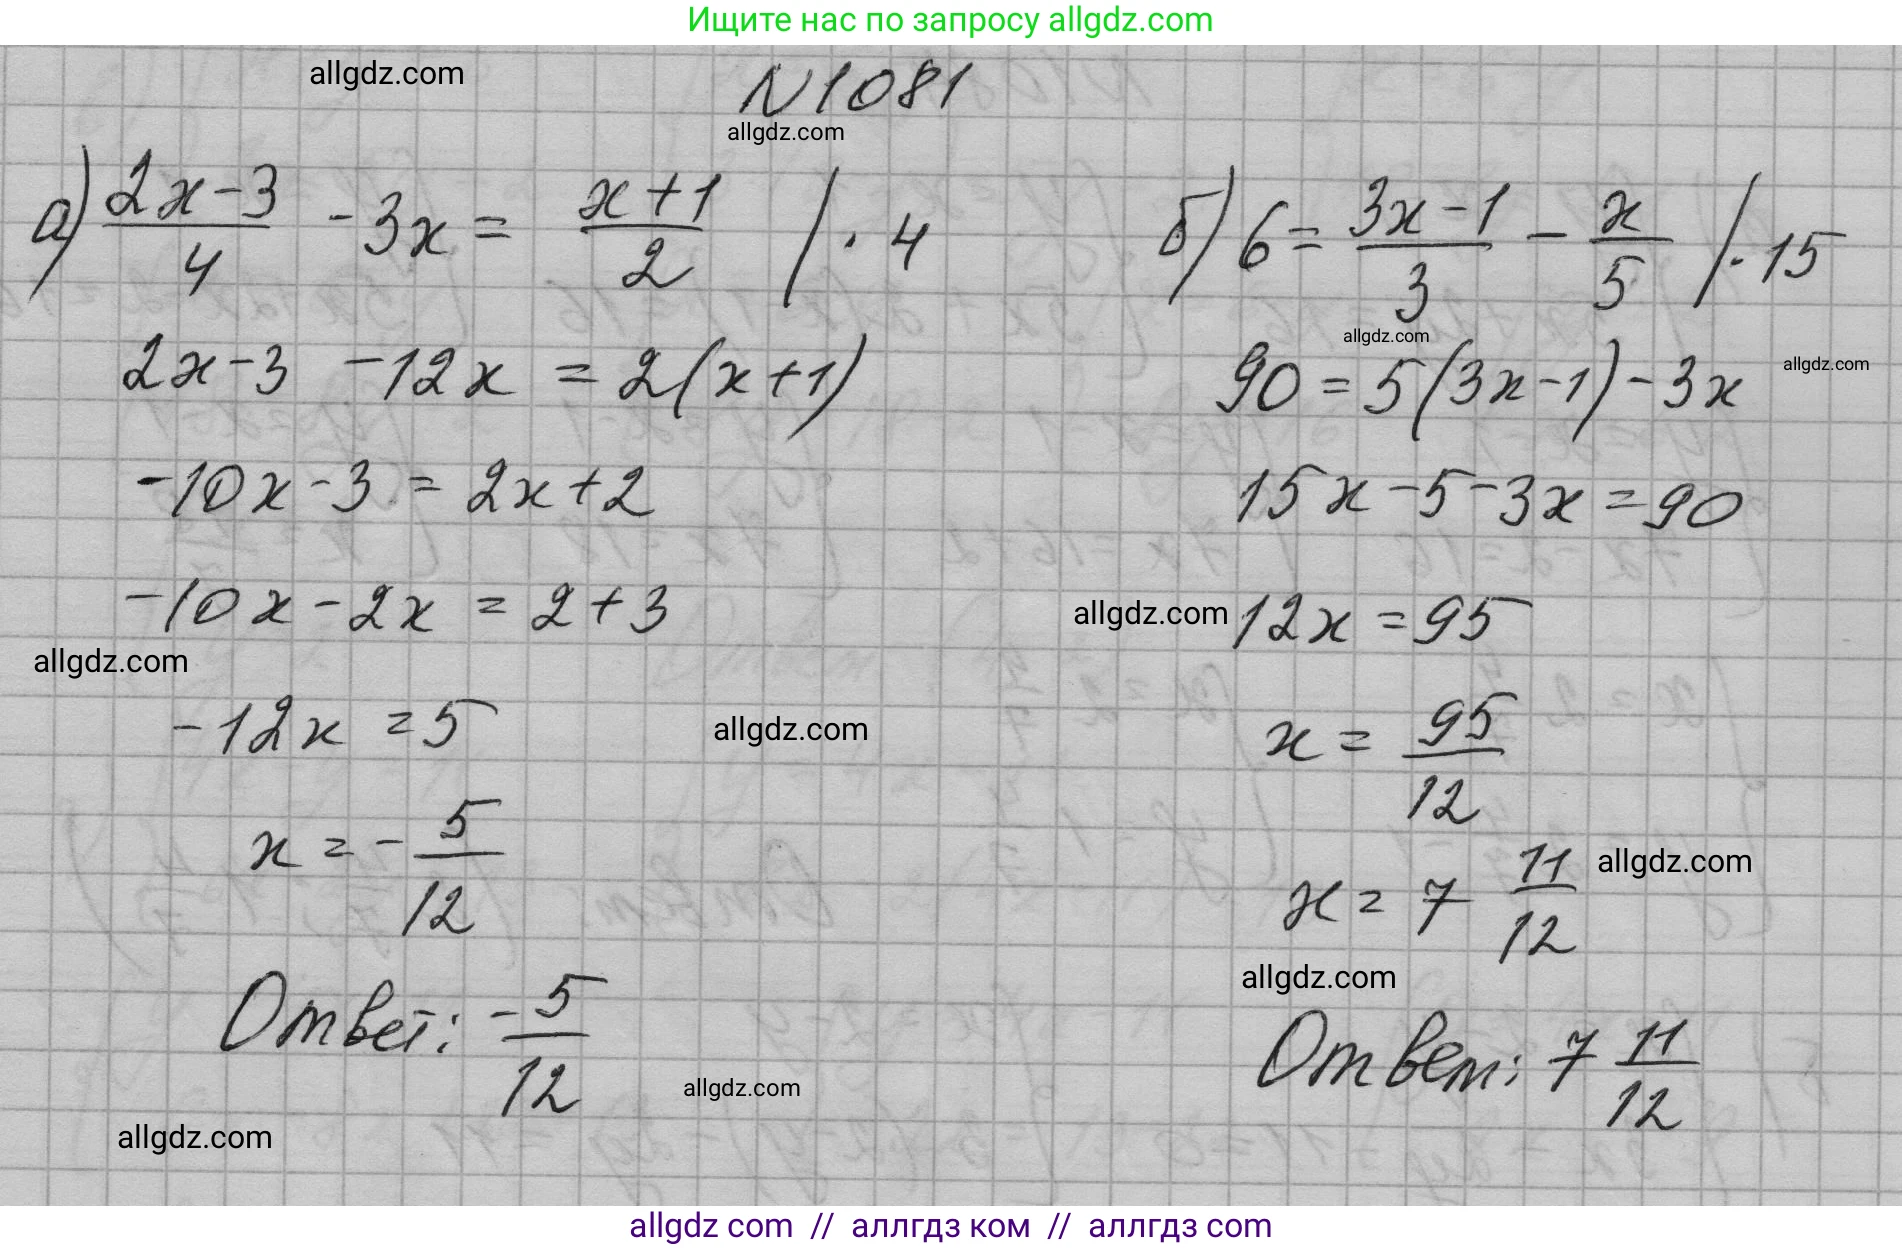 Ищите нас по запросу allgdz.com
allgdz.com
N1081
allgdz.com
а) (2x-3)/4 - 3x = (x+1)/2 | · 4
2x-3 -12x = 2(x+1)
-10x-3 = 2x+2
-10x-2x = 2+3
allgdz.com
-12x = 5
allgdz.com
x = - 5/12
Ответ: - 5/12
allgdz.com
allgdz.com
б) 6 = (3x-1)/3 - x/5 | · 15
allgdz.com
allgdz.com
90 = 5(3x-1) - 3x
15x - 5 - 3x = 90
allgdz.com
12x = 95
x = 95/12
x = 7 11/12
allgdz.com
allgdz.com
Ответ: 7 11/12
allgdz com // аллгдз ком // аллгдз com